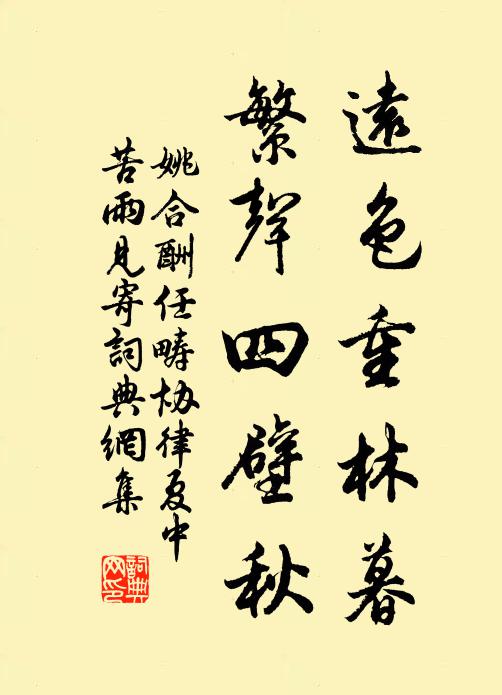 遠色重林暮
繁聲四壁秋
姚合酬任疇协律夏中
苦雨見寄詞典網集
詞典
网印